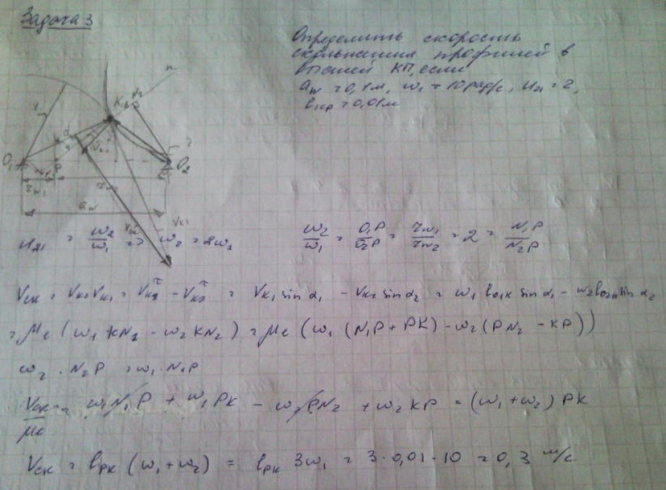 Задача 3
Определить скорость
скольжения профилей в
высшей КП, если
aw = 0,1 м, ω1 = 10 рад/с, u21 = 2,
lкр = 0,01 м
O1
O2
P
aw
Vк1
u21 = ω2/ω1 => ω2 = 2ω1
ω2/ω1 = O1P/O2P = rw1/rw2 = 2 = N1P/N2P
Vск = Vк2Vк1 = Vк1^τ - Vк2^τ = Vк1 sin α1 - Vк2 sin α2 = ω1 lO1K sin α1 - ω2 lO2K sin α2
= μe (ω1 KN1 - ω2 KN2) = μe (ω1 (N1P + PK) - ω2 (PN2 - KP))
ω2 · N2P = ω1 · N1P
Vск/μe = ω1 N1P + ω1 PK - ω2 PN2 + ω2 KP = (ω1 + ω2) PK
Vск = lPK (ω1 + ω2) = lPK 3ω1 = 3 · 0,01 · 10 = 0,3 м/с